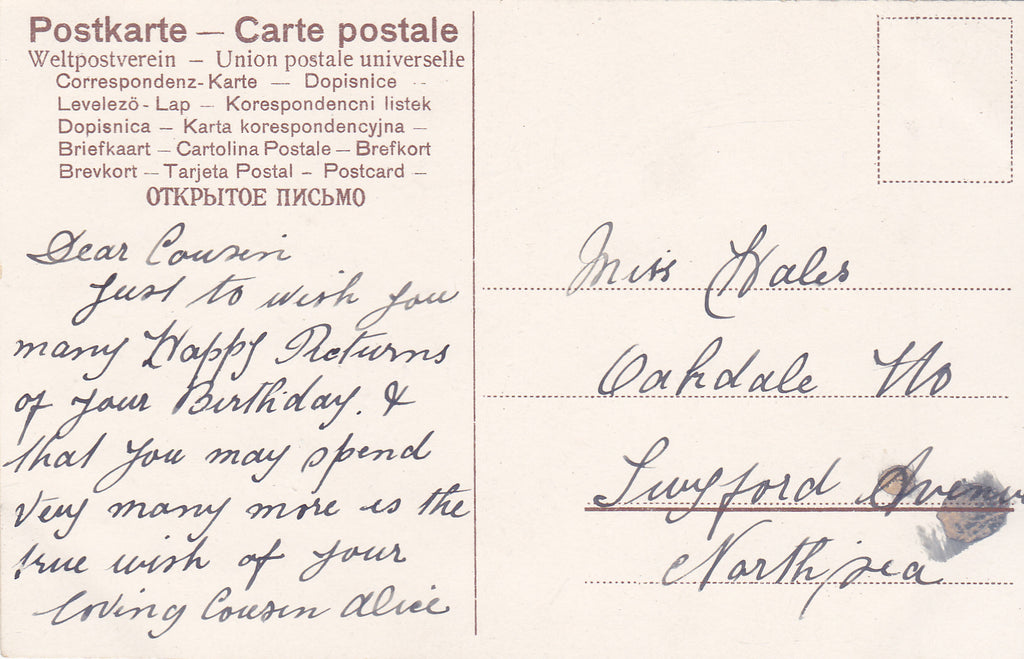 Postkarte — Carte postale
Weltpostverein – Union postale universelle
Correspondenz-Karte — Dopisnice –
Levelezö-Lap — Korespondencni listek
Dopisnica — Karta korespondencyjna —
Briefkaart — Cartolina Postale — Brefkort
Brevkort — Tarjeta Postal — Postcard —
ОТКРЫТОЕ ПИСЬМО
Dear Cousin
Just to wish you
many Happy Returns
of your Birthday. &
that you may spend
very many more is the
true wish of your
loving Cousin Alice
Miss Hales
Oakdale Ho
Avenue
Northsea